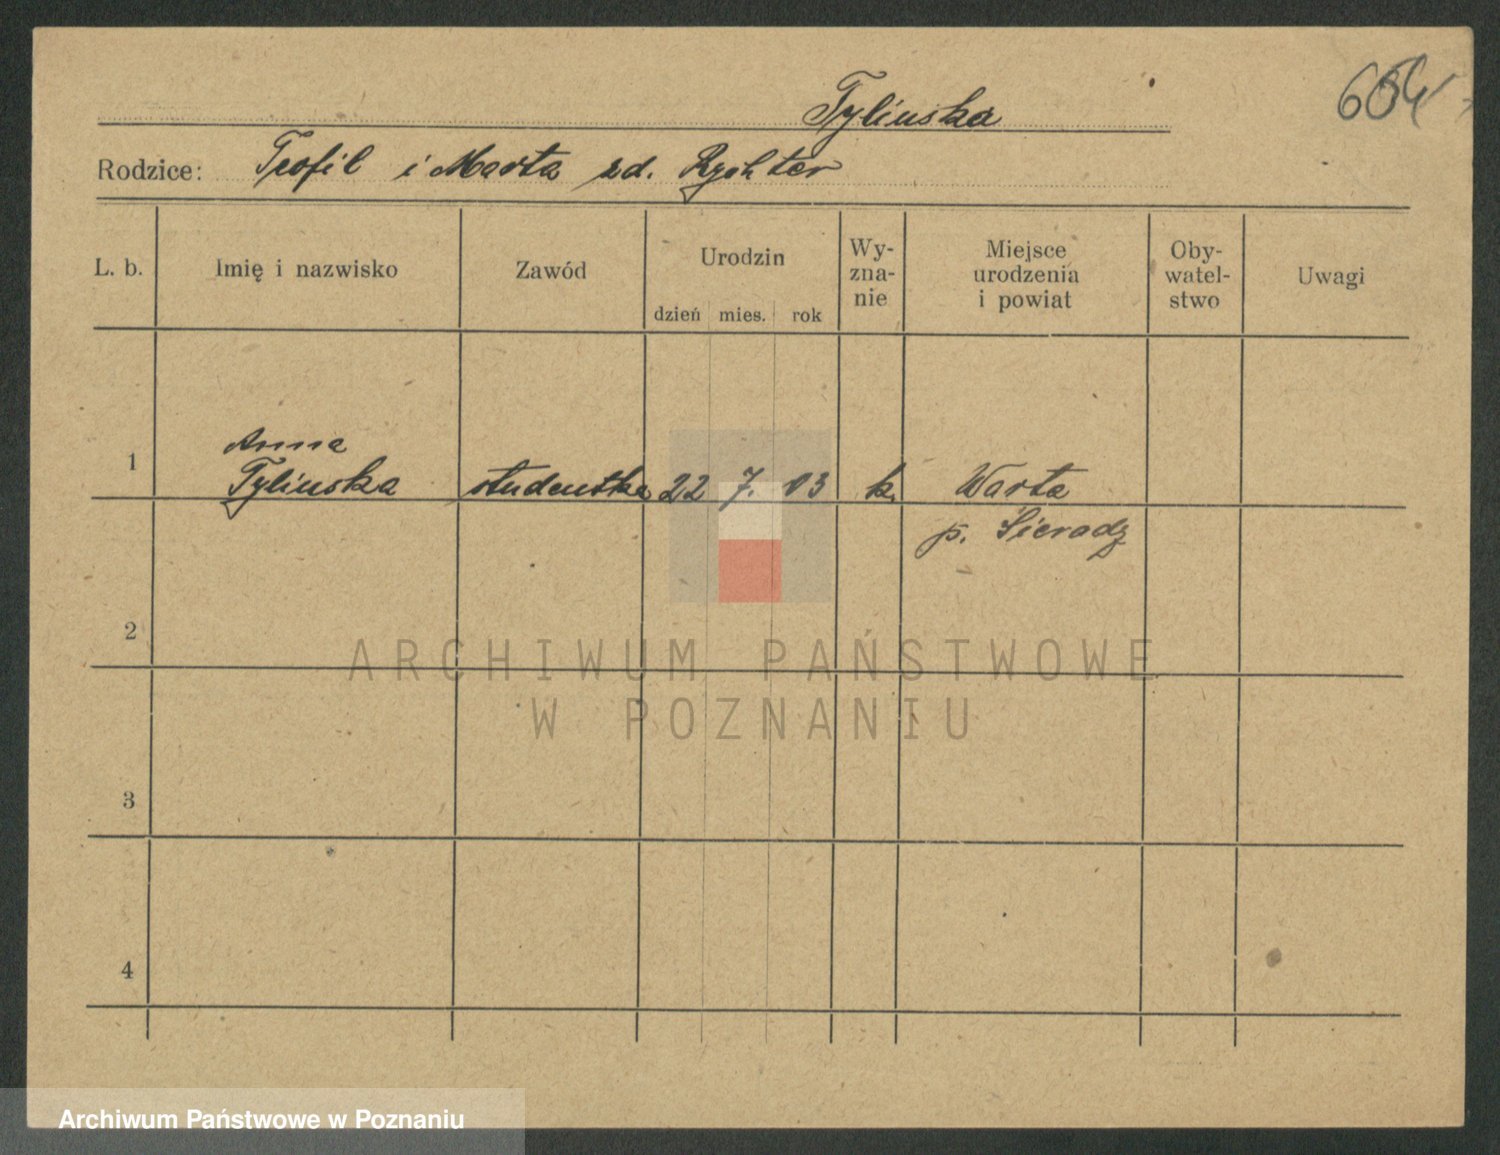 Tylinska
Rodzice: Teofil i Marta zd. Rychter
L. b. Imię i nazwisko Zawód Urodzin dzień mies. rok Wy-zna-nie Miejsce urodzenia i powiat Oby-watel-stwo Uwagi
Anna
1 Tylinska studentka 22 7. 03 k. Warta
p. Sieradz
2
ARCHIWUM PAŃSTWOWE
W POZNANIU
3
4
Archiwum Państwowe w Poznaniu